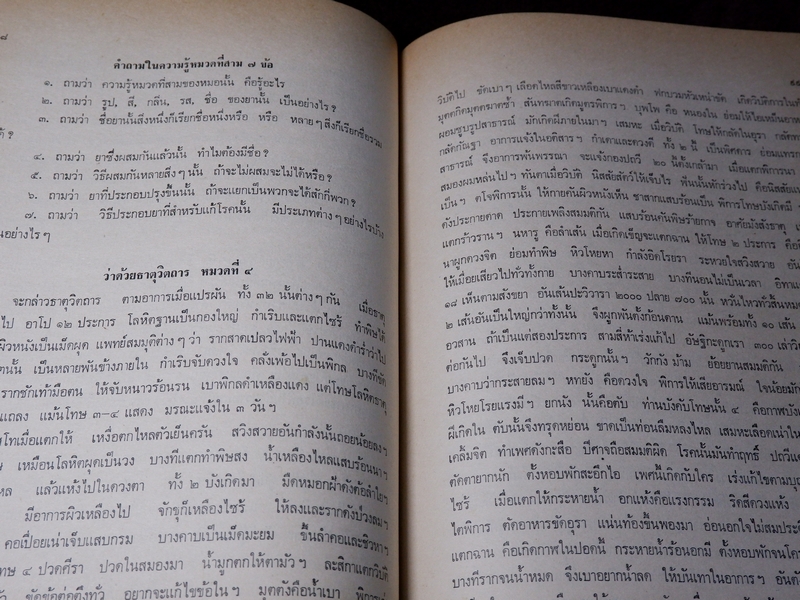 ๘
คำถามในความรู้หมวดที่สาม ๗ ข้อ
๑. ถามว่า ความรู้หมวดที่สามของหมอนั้น คือรู้อะไร
๒. ถามว่า รูป, สี, กลิ่น, รส, ชื่อ ของยานั้น เป็นอย่างไร?
๓. ถามว่า ชื่อยานั้นสิ่งหนึ่งก็เรียกชื่อหนึ่งหรือ หรือ หลายๆ สิ่งก็เรียกชื่อรวม
ด้?
๔. ถามว่า ยาซึ่งผสมกันแล้วนั้น ทำไมต้องมีชื่อ?
๕. ถามว่า วิธีผสมกันหลายสิ่งๆ นั้น ถ้าจะไม่ผสมจะไม่ได้หรือ?
๖. ถามว่า ยาที่ประกอบปรุงขึ้นนั้น ถ้าจะแยกเป็นพวกจะได้สักกี่พวก?
๗. ถามว่า วิธีประกอบยาที่สำหรับแก้โรคนั้น มีประเภทต่างๆ อย่างไรบ้าง
นอย่างไรๆ
ว่าด้วยธาตุวิตถาร หมวดที่ ๔
จะกล่าวธาตุวิตถาร ตามอาการเมื่อแปรผัน ทั้ง ๓๒ นั้นต่างๆ กัน เมื่อธาตุ
ไป อาโป ๑๒ ประการ โลหิตฐานเป็นกองใหญ่ กำเริบและแตกไซร้ ทำพิษได้
ผิวหนังเป็นเม็ดผุด แพทย์สมมุติต่างๆ ว่า รากสาดเปลวไฟฟ้า ปานแดงดำร่ำว่าไป
ตนั้น เป็นหลายพันข้างภายใน กำเริบจับดวงใจ คลั่งเพ้อไปเป็นพิกล บางทีขัด
รากชักเท้ามือตน ให้จับหนาวร้อนรน เบาพิกลดำเหลืองแดง แต่โทษโลหิตธาตุ
แถลง แม้นโทษ ๓-๔ แสดง มรณะแจ้งใน ๓ วันฯ
สโทเมื่อแตกให้ เหงื่อตกไหลตัวเย็นครัน สวิงสวายอันกำลังนั้นถอยน้อยลงฯ
เหมือนโลหิตผุดเป็นวง บางทีแตกทำพิษสง น้ำเหลืองไหลแสบร้อนหนาฯ
หล แล้วแห้งไปในดวงตา ทั้ง ๒ บังเกิดมา มืดหมอกฝ้าดังต้อลำไยฯ
มีอาการผิวเหลืองไป จักขุก็เหลืองไซร้ ให้ลงและรากดังป่วงลมฯ
คอเปื่อยเน่าเจ็บแสบกรม บางคาบเป็นเม็ดมะยม ขึ้นลำคอและชิวหาฯ
ทษ ๔ ปวดศีรา ปวดในสมองมา น้ำมูกตกให้ตามัวฯ ละสิกาแตกวิบัติ
ขัดข้อต่อตึงทั่ว อยากจะแก้ไขข้อในฯ มูตตังคือน้ำเบา
วิบัติไป ขัดเบาๆ เลือดไหลสีขาวเหลืองเบาแดงดำ ฟกบวมหัวเหน่าขัด
๒๐ นี้ดั่งเกล้ามา เมื่อแตกพิการนา
สมองผมหล่นไปฯ ทันตาเมื่อวิบัติ
เป็นฯ ตโจพิการนั้น ให้กายคันผิวหนังเห็น ซาสากแสบร้อนเป็น พิการโทษบังเกิดมี
ดังประกายดาด ประกายเพลิงสมมติกัน แสบร้อนคันพิษร้ายกาจ
แตกร้าวรานฯ นหารู คือลำเส้น เมื่อเกิดเข็ญจะแตกฉาน ให้โทษ ๒ ประการ คือ
นาผูกดวงจิต ย่อมทำพิษ หิวโหยหา กำลังอิดโรยรา ระหวยใจสวิงสวาย
ให้เมื่อยเสียวไปทั่วทั้งกาย บางคาบระส่ำระสาย บางทีนอนไม่เป็นเวลา
๑๘ เห็นตามสังขยา อันเส้นปะวิวารา ๒๐๐๐ ปลาย ๗๐๐ นั้น หวั่นไหวทั่วสิ้นหมด
๒ เส้นอันเป็นใหญ่กว่าทั้งนั้น จึงผูกพันตั้งก้อนดาน แม้นพร้อมทั้ง ๑๐ เส้น
อวสาน ถ้าเป็นแต่สองประการ สามสี่ห้าเร่งแก้ไป อัษฐิกะดูกเรา ๓๐๐
ต่อกันไป จึงเจ็บปวด กระดูกนั้นฯ วักกัง ม้าม ย้อยยานสมมติกัน
บางคาบว่ากระสายลมฯ หทยัง คือดวงใจ พิการให้เสียอารมณ์
หิวโหยโรยแรงมีฯ ยกนัง นั้นคือตับ ท่านบังคับโทษนั้น ๔
ผีเกิดใน ตับนั้นจึงทรุดหย่อน ขาดเป็นท่อนลืมหลงไหล เสมหะเลือดเน่าใน
เคล้มจิต ทำเพศดังกะสือ ปีศาจถือสมมติผิด โรคนั้นมันทำฤทธิ์
ตัดตายยากนัก ตั้งหอบพักสะอึกไอ เพศนี้เกิดกับใคร เร่งแก้ไขตามบุญ
ไซร้ เมื่อแตกให้กระหายน้ำ อกแห้งคือแรงกรรม ริดสีดวงแห้ง
ไตพิการ ตัดอาหารขัดอุรา แน่นท้องขึ้นพองมา อ่อนอกใจไม่สมประ
แตกฉาน คือเกิดกาฬในปอดนี้ กระหายน้ำร้อนอกมี ตั้งหอบพักจน
บางทีรากจนน้ำหมด จึงเบาอยากน้ำลด ให้บันเทาในอาการฯ